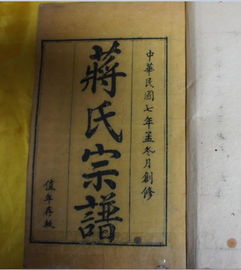 中華民國七年孟冬月創修
蔣氏宗譜
值年存執